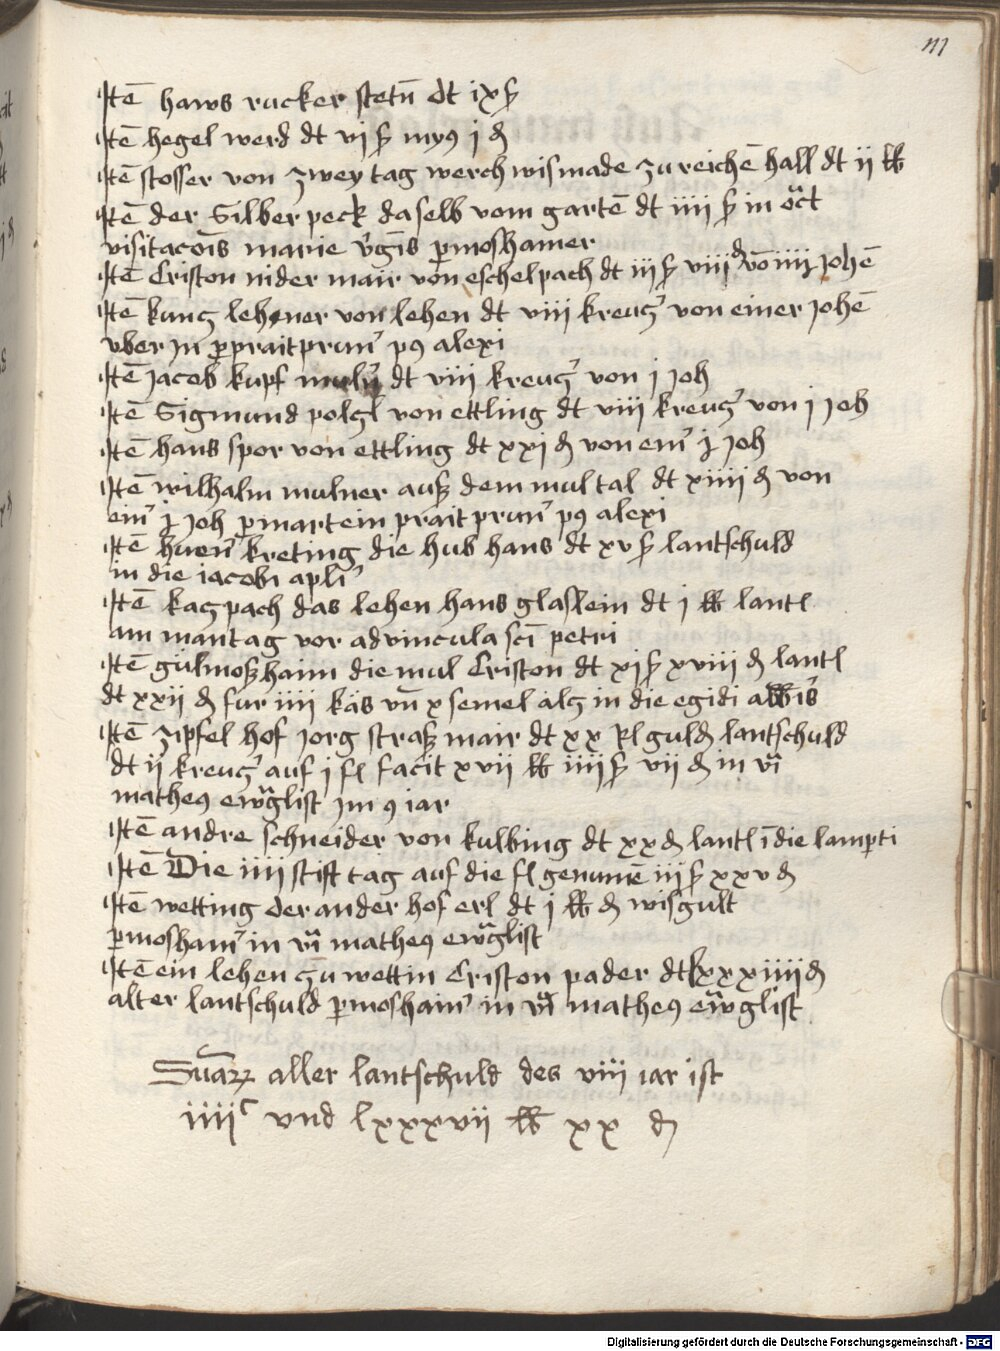 111
Itē haws rucker stetn̄ dt ix ß
Itē hegel werd dt vj ß mynꝯ j ₰
Itē stosser von zwey tag werch wismade zu reichē hall dt ij lb
Itē der Silberpeck daselb vom gartē dt iiii ß in oct
visitacōis marie v̓gīs ꝑ moshamer
Itē Criston nider mair von eschelpach dt iij ß viii ₰ vō iiij johē
Itē kuncz lehner von lehen dt viii kreucz̓ von einer johē
vber In ꝑ praitprun̓ pꝯ alexi
Itē jacob kupf muln̓ dt viii kreucz̓ von j joh
Itē Sigmund polczl von ettling dt viii kreucz̓ von j joh
Itē hans spor von ettling dt xxj ₰ von ein̓ j joh
Itē wilhalm mulner ausz dem multal dt xiiij ₰ von
ein̓ j joh ꝑ martein praitprun̓ pꝯ alexi
Itē kreting die hub hans dt xv ß lantschuld
in die iacobi apli̓
Itē kaczpach das lehen hans glaslein dt j lb lantl
am mantag vor advincula scī petri
Itē gulmoszhaim die mul Criston dt xj ß xviii ₰ lantl
dt xxii ₰ fur iiii käs vn̄ x semel alcz in die egidi abb̄is
Itē zipfel hof jorg strasz mair dt xx Rl guld̄ lantschuld
dt ij kreucz̓ auf j fl facit xvii lb iiii ß vii ₰ in vi̓
matheꝯ ewāglist im ꝯ iar
Itē andre schneider von kulbing dt xx ₰ lantl ī die lamꝑti
Itē Die iiii stift tag auf die fl genumē iij ß xxv ₰
Itē wetting der ander hof erl dt j lb ₰ wisgult
ꝑ mosham̓ in vi̓ matheꝯ ewāglist
Itē ein lehen zu wettin Criston pader dt lxxxiiii ₰
alter lantschuld ꝑ mosham̓ in vi̓ matheꝯ ewāglist
Suma aller lantschuld des viii iar ist
iiiiᶜ vnd lxxxvii lb xx ₰
Digitalisierung gefördert durch die Deutsche Forschungsgemeinschaft - DFG